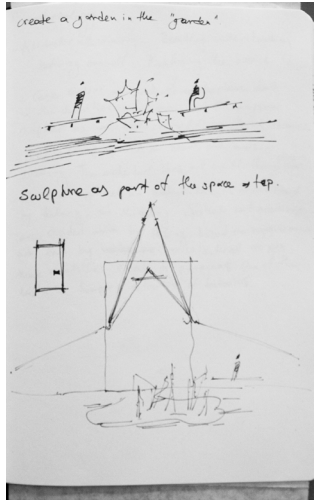 create a garden in the "garden"
Sculpture as part of the space & top.